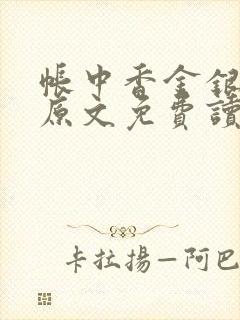 帳中香金銀
原文免費讀
卡拉揚—阿巴